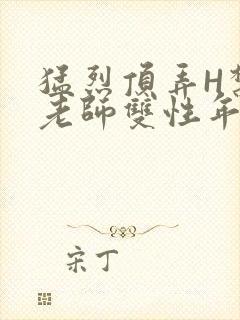 猛烈頂弄H
老師雙性年
宋丁